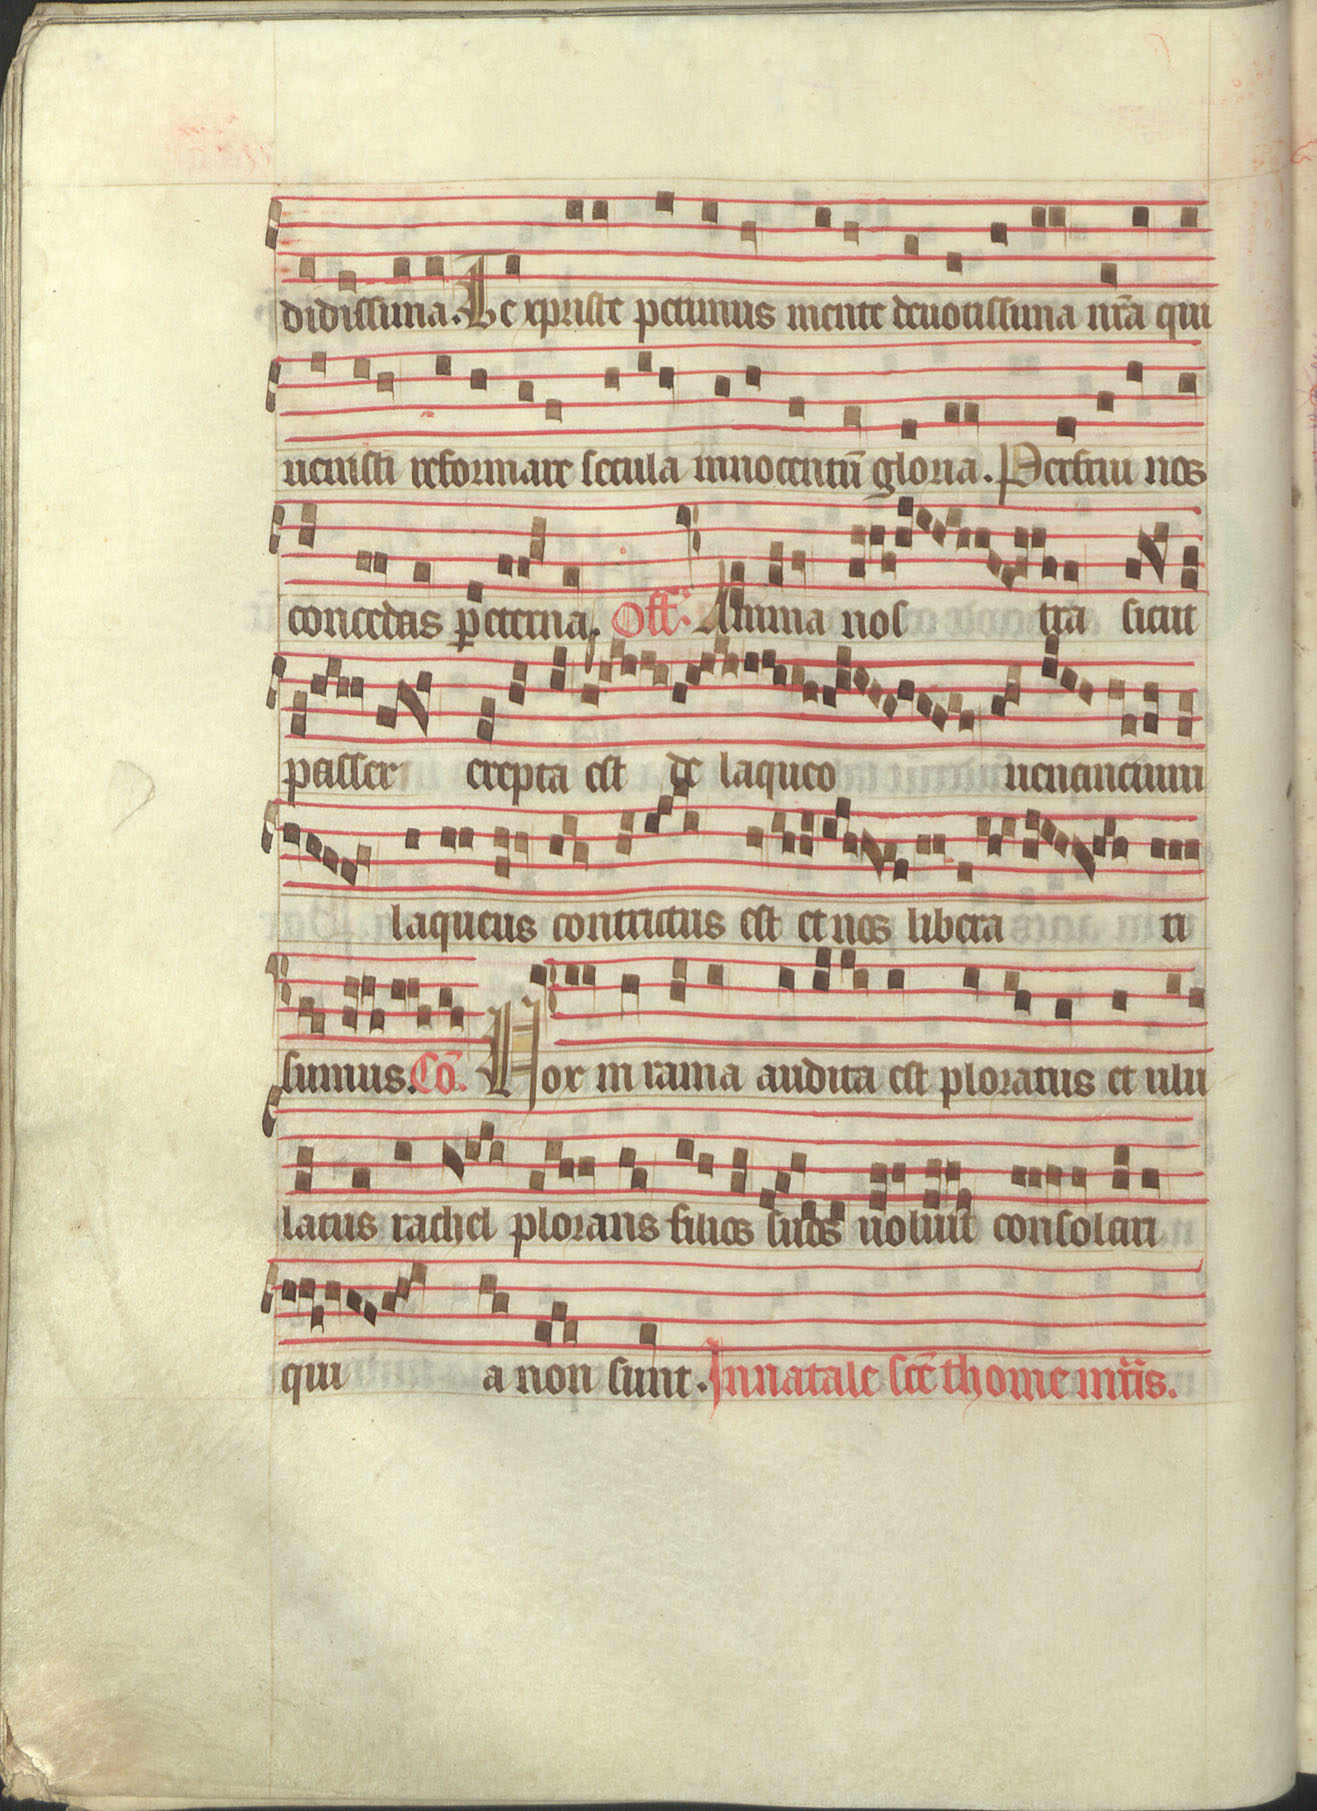 didissima. Te xpriste petimus mente deuotissima nr̄a qui
uenisti reformare secula innocentū gloria. Perfrui nos
concedas p eterna. Off. Anima nos tra sicut
passer erepta est de laqueo uenancium
laqueus contritus est et nos libera ti
sumus. Cō. Uox in rama audita est ploratus et ulu
latus rachel plorans filios suos noluit consolari
qui a non sunt. In natale scē thome mr̄is.